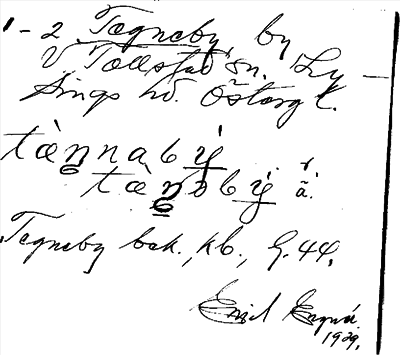 1-2 Tægneby, by
V Tollstad sn. Ly-
sings hd. Östergl.
tæ̀nnabý
tæ̀nəbý ä.
Tegneby bok., kb., G. 44.
Emil
1929.